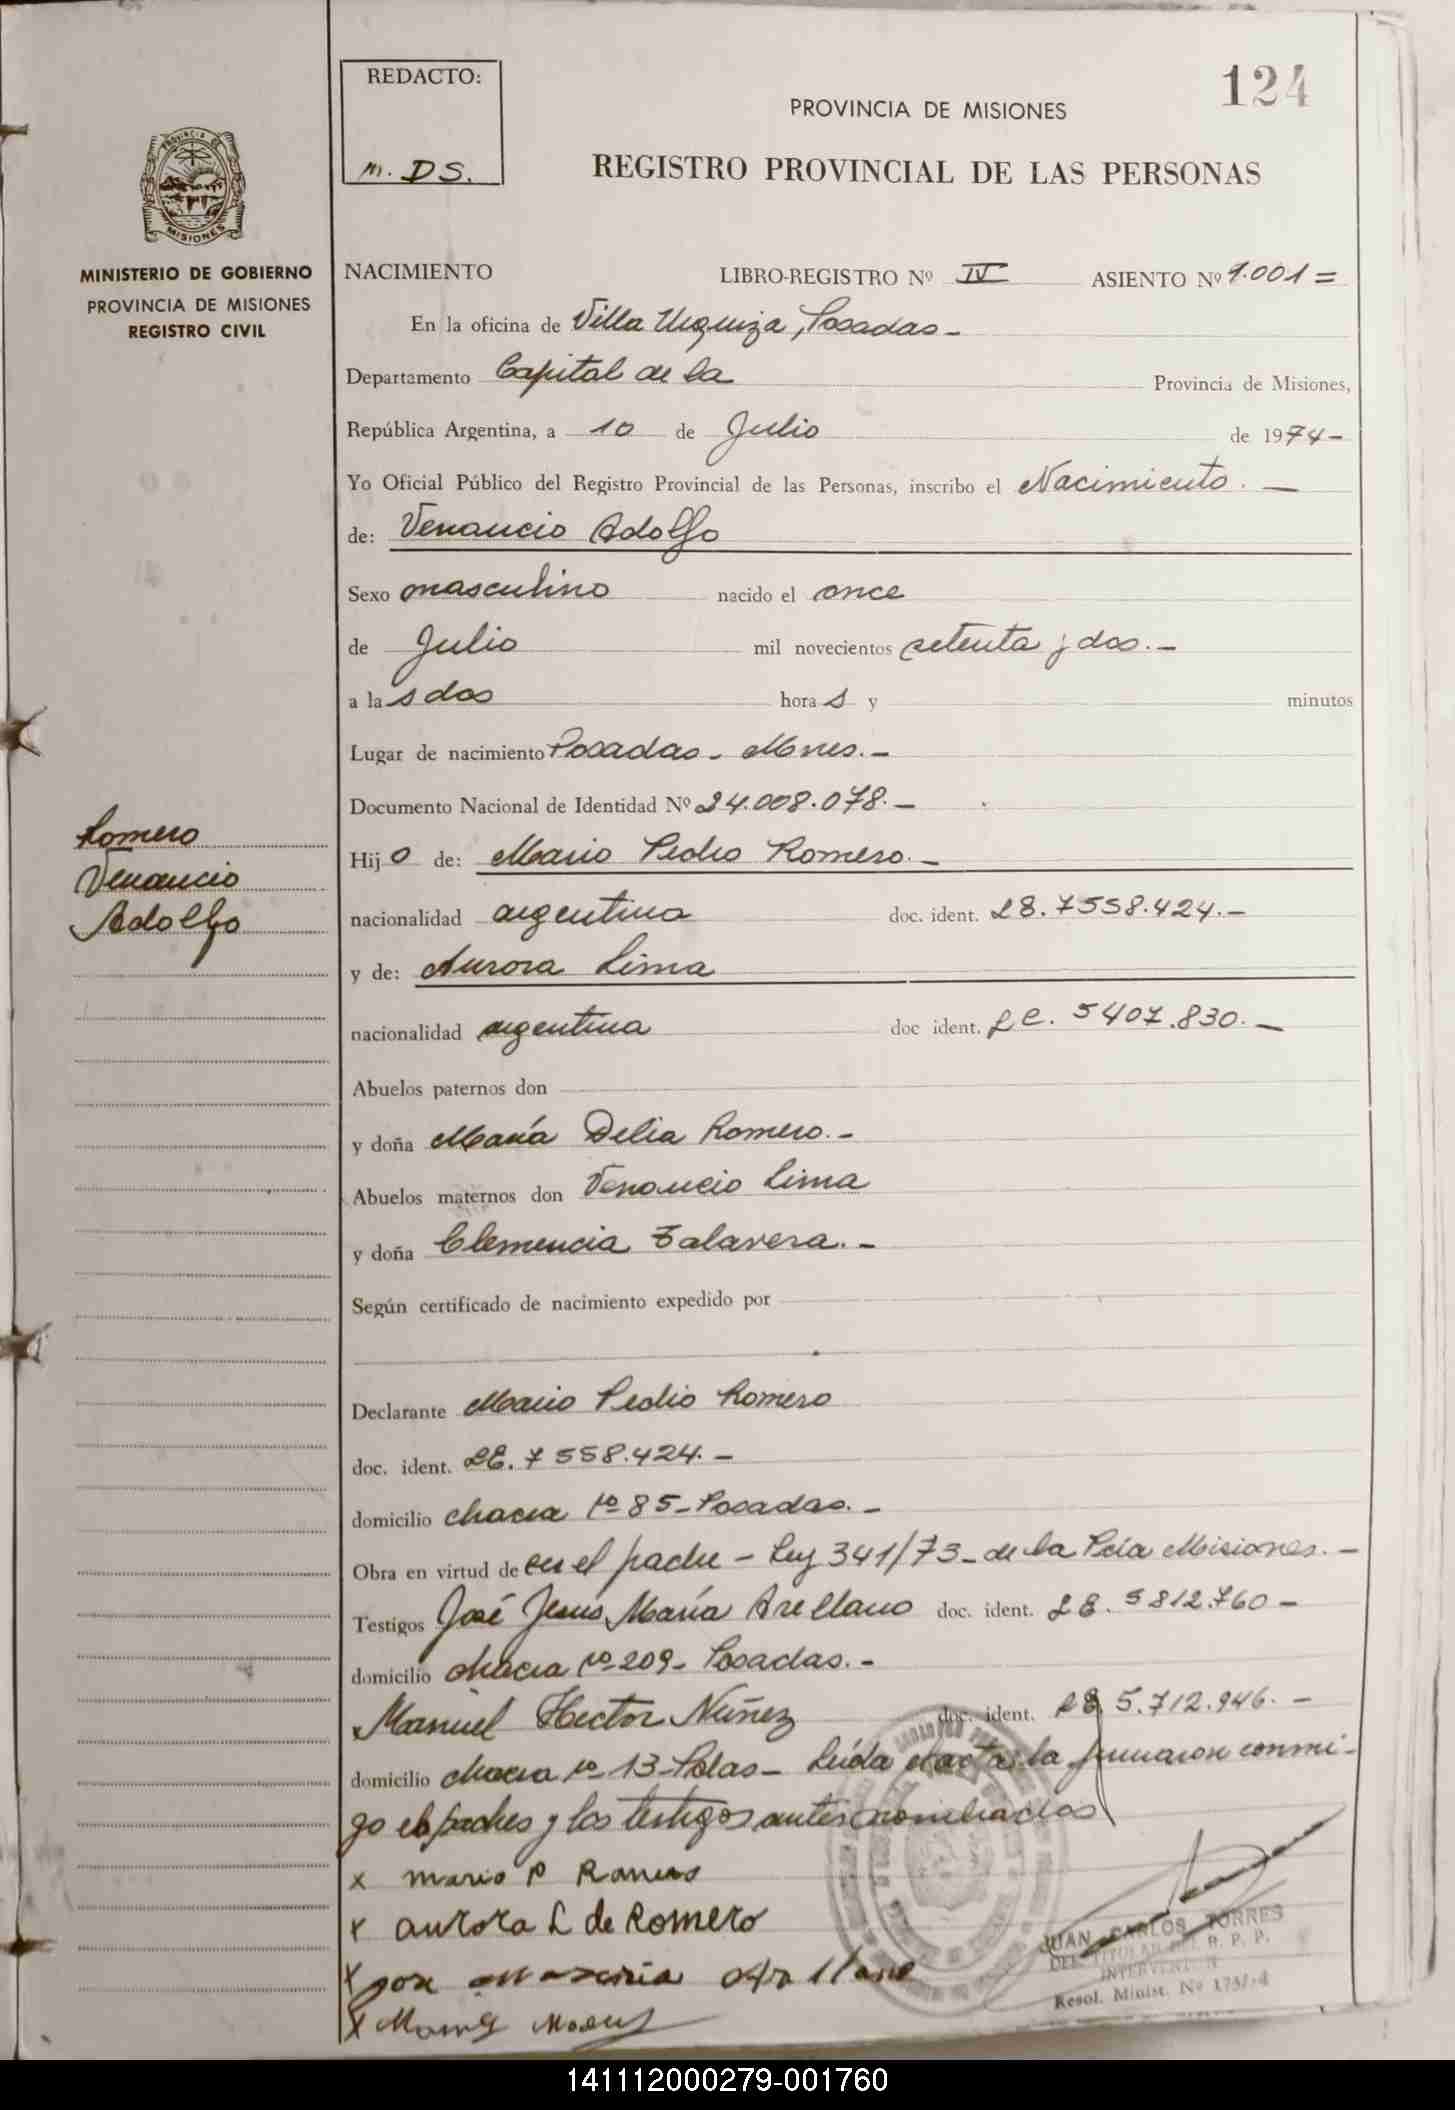 REDACTO:
M. DS.
124
PROVINCIA DE MISIONES
REGISTRO PROVINCIAL DE LAS PERSONAS
PROVINCIA DE
MISIONES
MINISTERIO DE GOBIERNO
PROVINCIA DE MISIONES
REGISTRO CIVIL
NACIMIENTO LIBRO-REGISTRO Nº IV ASIENTO Nº 1.001=
En la oficina de Villa Urquiza, Posadas-
Departamento Capital de la Provincia de Misiones,
República Argentina, a 10 de Julio de 1974-
Yo Oficial Público del Registro Provincial de las Personas, inscribo el Nacimiento. —
de: Venancio Adolfo
Sexo masculino nacido el once
de Julio mil novecientos setenta y dos.-
a las dos horas y minutos
Lugar de nacimiento Posadas- Mnes.-
Documento Nacional de Identidad Nº 24.008.078.-
Romero
Venancio
Adolfo
Hijo de: Mario Pedro Romero.-
nacionalidad argentina doc. ident. LE. 7558.424.-
y de: Aurora Lima
nacionalidad argentina doc ident. LC. 5407.830.-
Abuelos paternos don
y doña María Delia Romero.-
Abuelos maternos don Venancio Lima
y doña Clemencia Talavera.-
Según certificado de nacimiento expedido por
Declarante Mario Pedro Romero
doc. ident. LE. 7558.424.-
domicilio chacra Nº 85-Posadas.-
Obra en virtud de ser el padre - Ley 341/73-de la Pcia Misiones.-
Testigos José Jesús María Arellano doc. ident. LE. 5812.760-
domicilio chacra Nº 209- Posadas.-
Manuel Hector Núñez doc. ident. LE 5.712.946.-
domicilio chacra Nº 13-Pdas- Leída el acta la firmaron conmi-
go el padres y los testigos antes nombrados
x mario P Romero
x aurora L de Romero
x
x
JUAN CARLOS TORRES
DEL. TITULAR DEL R. P. P.
INTERVENTOR
Resol. Minist. Nº 175/74
141112000279-001760